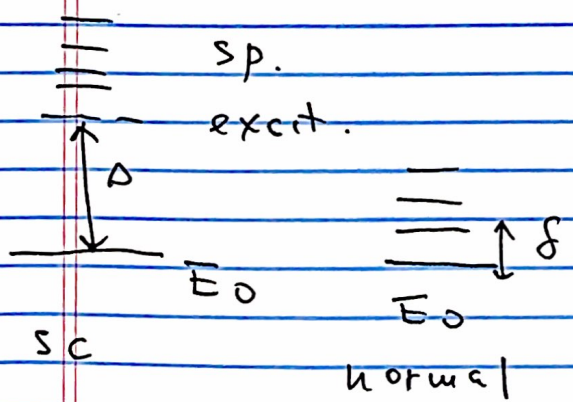 sp.
excit.
Δ
E0
SC
δ
E0
normal